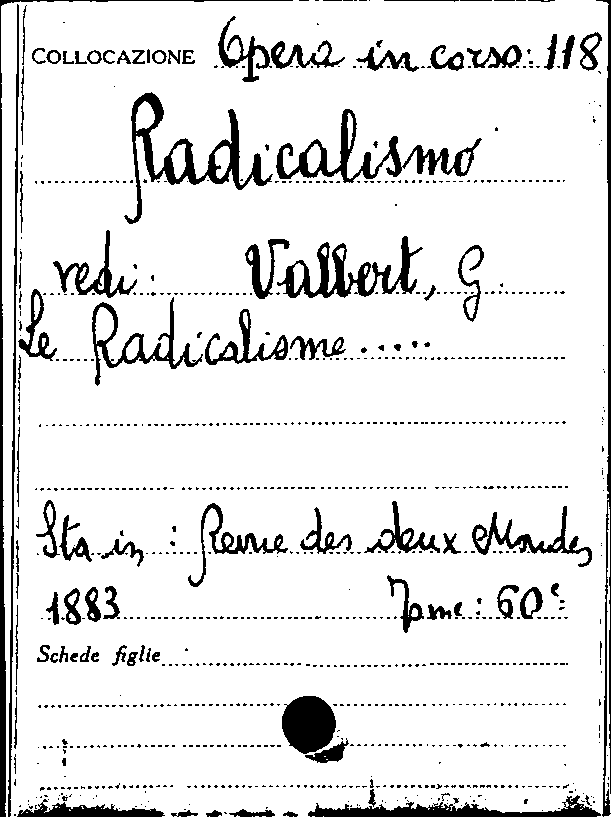 COLLOCAZIONE Opera in corso: 118
Radicalismo
vedi: Valbert, G.
Le Radicalisme.....
Sta in: Revue des deux Mondes
1883 Tome: 60e
Schede figlie